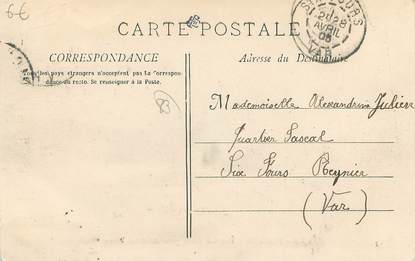 6€
CARTE POSTALE
CORRESPONDANCE
Tous les pays étrangers n'acceptent pas la Correspon-
dance au recto. Se renseigner à la Poste.
83
Adresse du Destinataire
OURS
21
AVRIL
VAR
Mademoiselle Alexandrine Julien
Quartier Pascal
Six Fours Reynier
(Var)